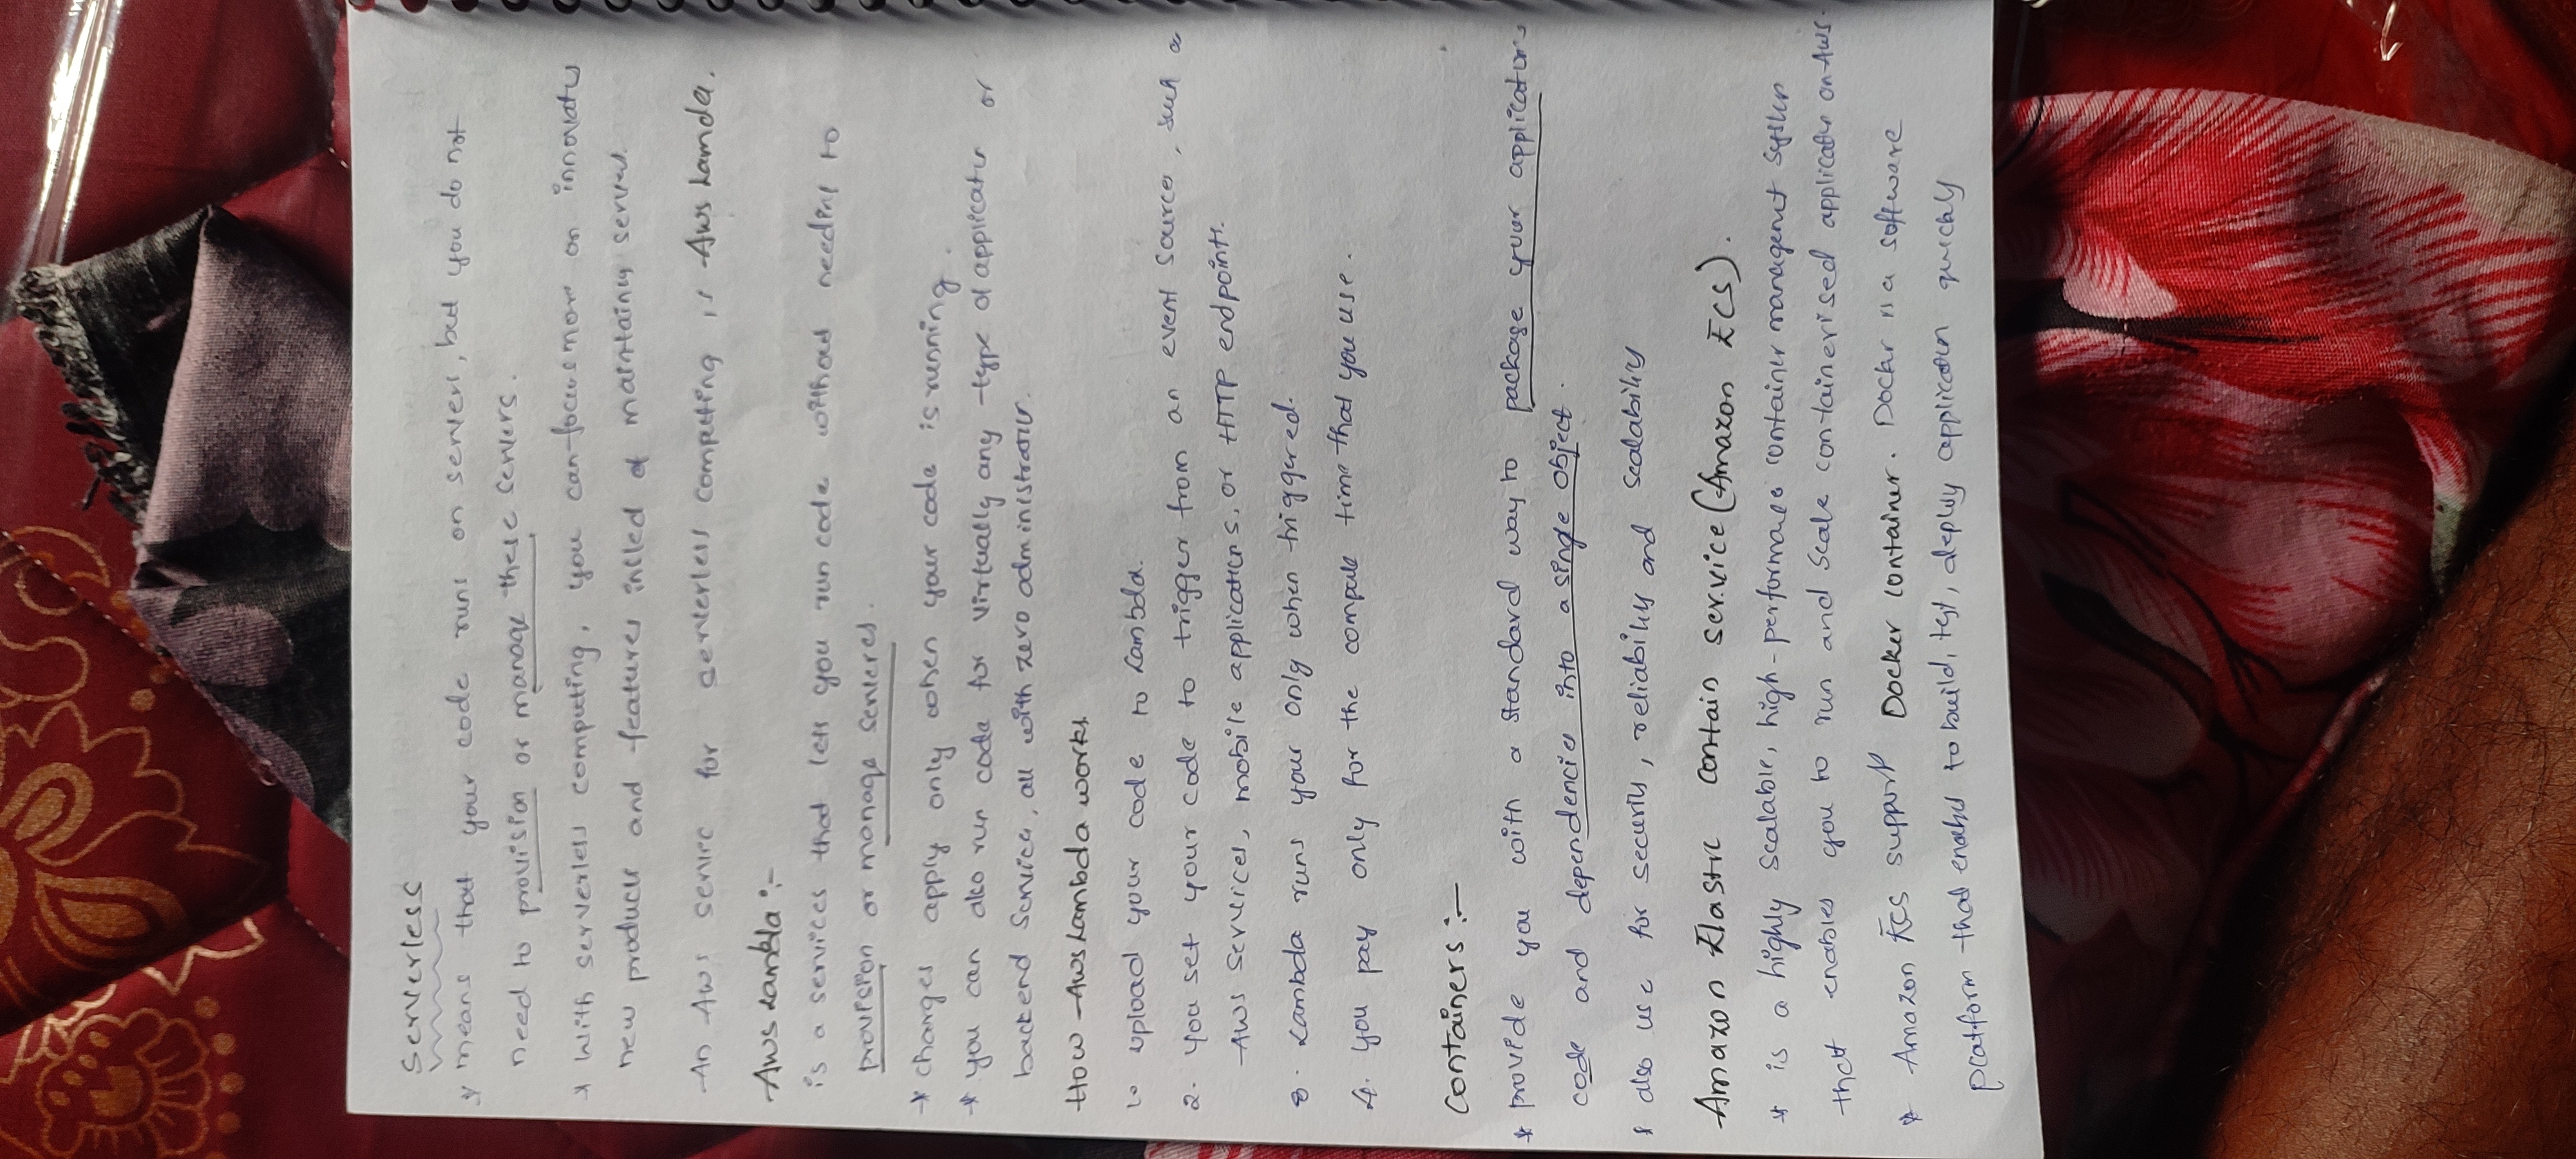 Serverless
* means that your code runs on servers, but you do not
need to provision or manage these servers.
* With serverless computing, you can focus more on innovatig
new products and features insted of maintaining servers.
An Aws service for serverless computing is Aws Lamda.
Aws Lambla :-
is a services that lets you run code without needing to
provision or manage serveres.
* charges apply only when your code is running.
* you can also run code for virtually any type of application or
backend service, all with zero administration.
How Aws Lambda works
1. upload your code to Lambda.
2. you set your code to trigger from an event source, such as
Aws services, mobile applications, or HTTP endpoints.
3. Lambda runs your only when triggered.
4. you pay only for the compute time that you use.
Containers :-
* provide you with a standard way to package your application's
code and dependencies into a single object.
* also use for security, reliability and scalability
Amazon Elastic contain service (Amazon ECS).
* is a highly scalable, high-performance container management system
that enables you to run and scale containerised application on Aws.
* Amazon ECS support Docker container. Docker is a software
platform that enables to build, test, deploy application quickly